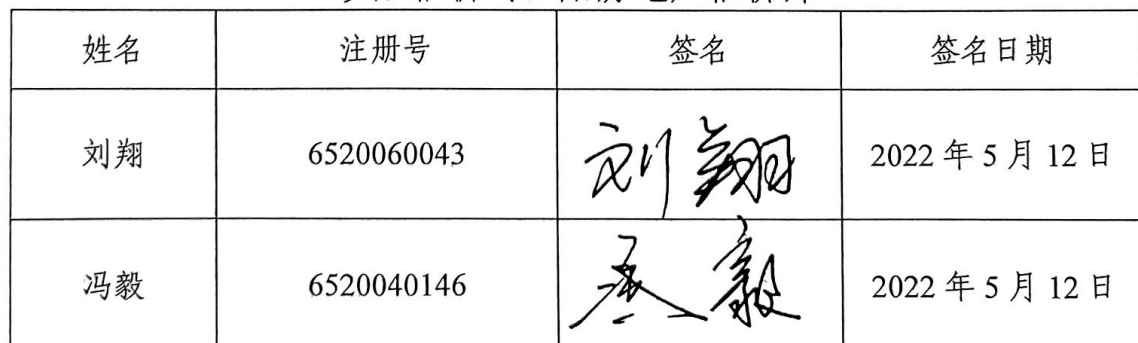 姓名 注册号 签名 签名日期
刘翔 6520060043 刘翔 2022年5月12日
冯毅 6520040146 毅 2022年5月12日